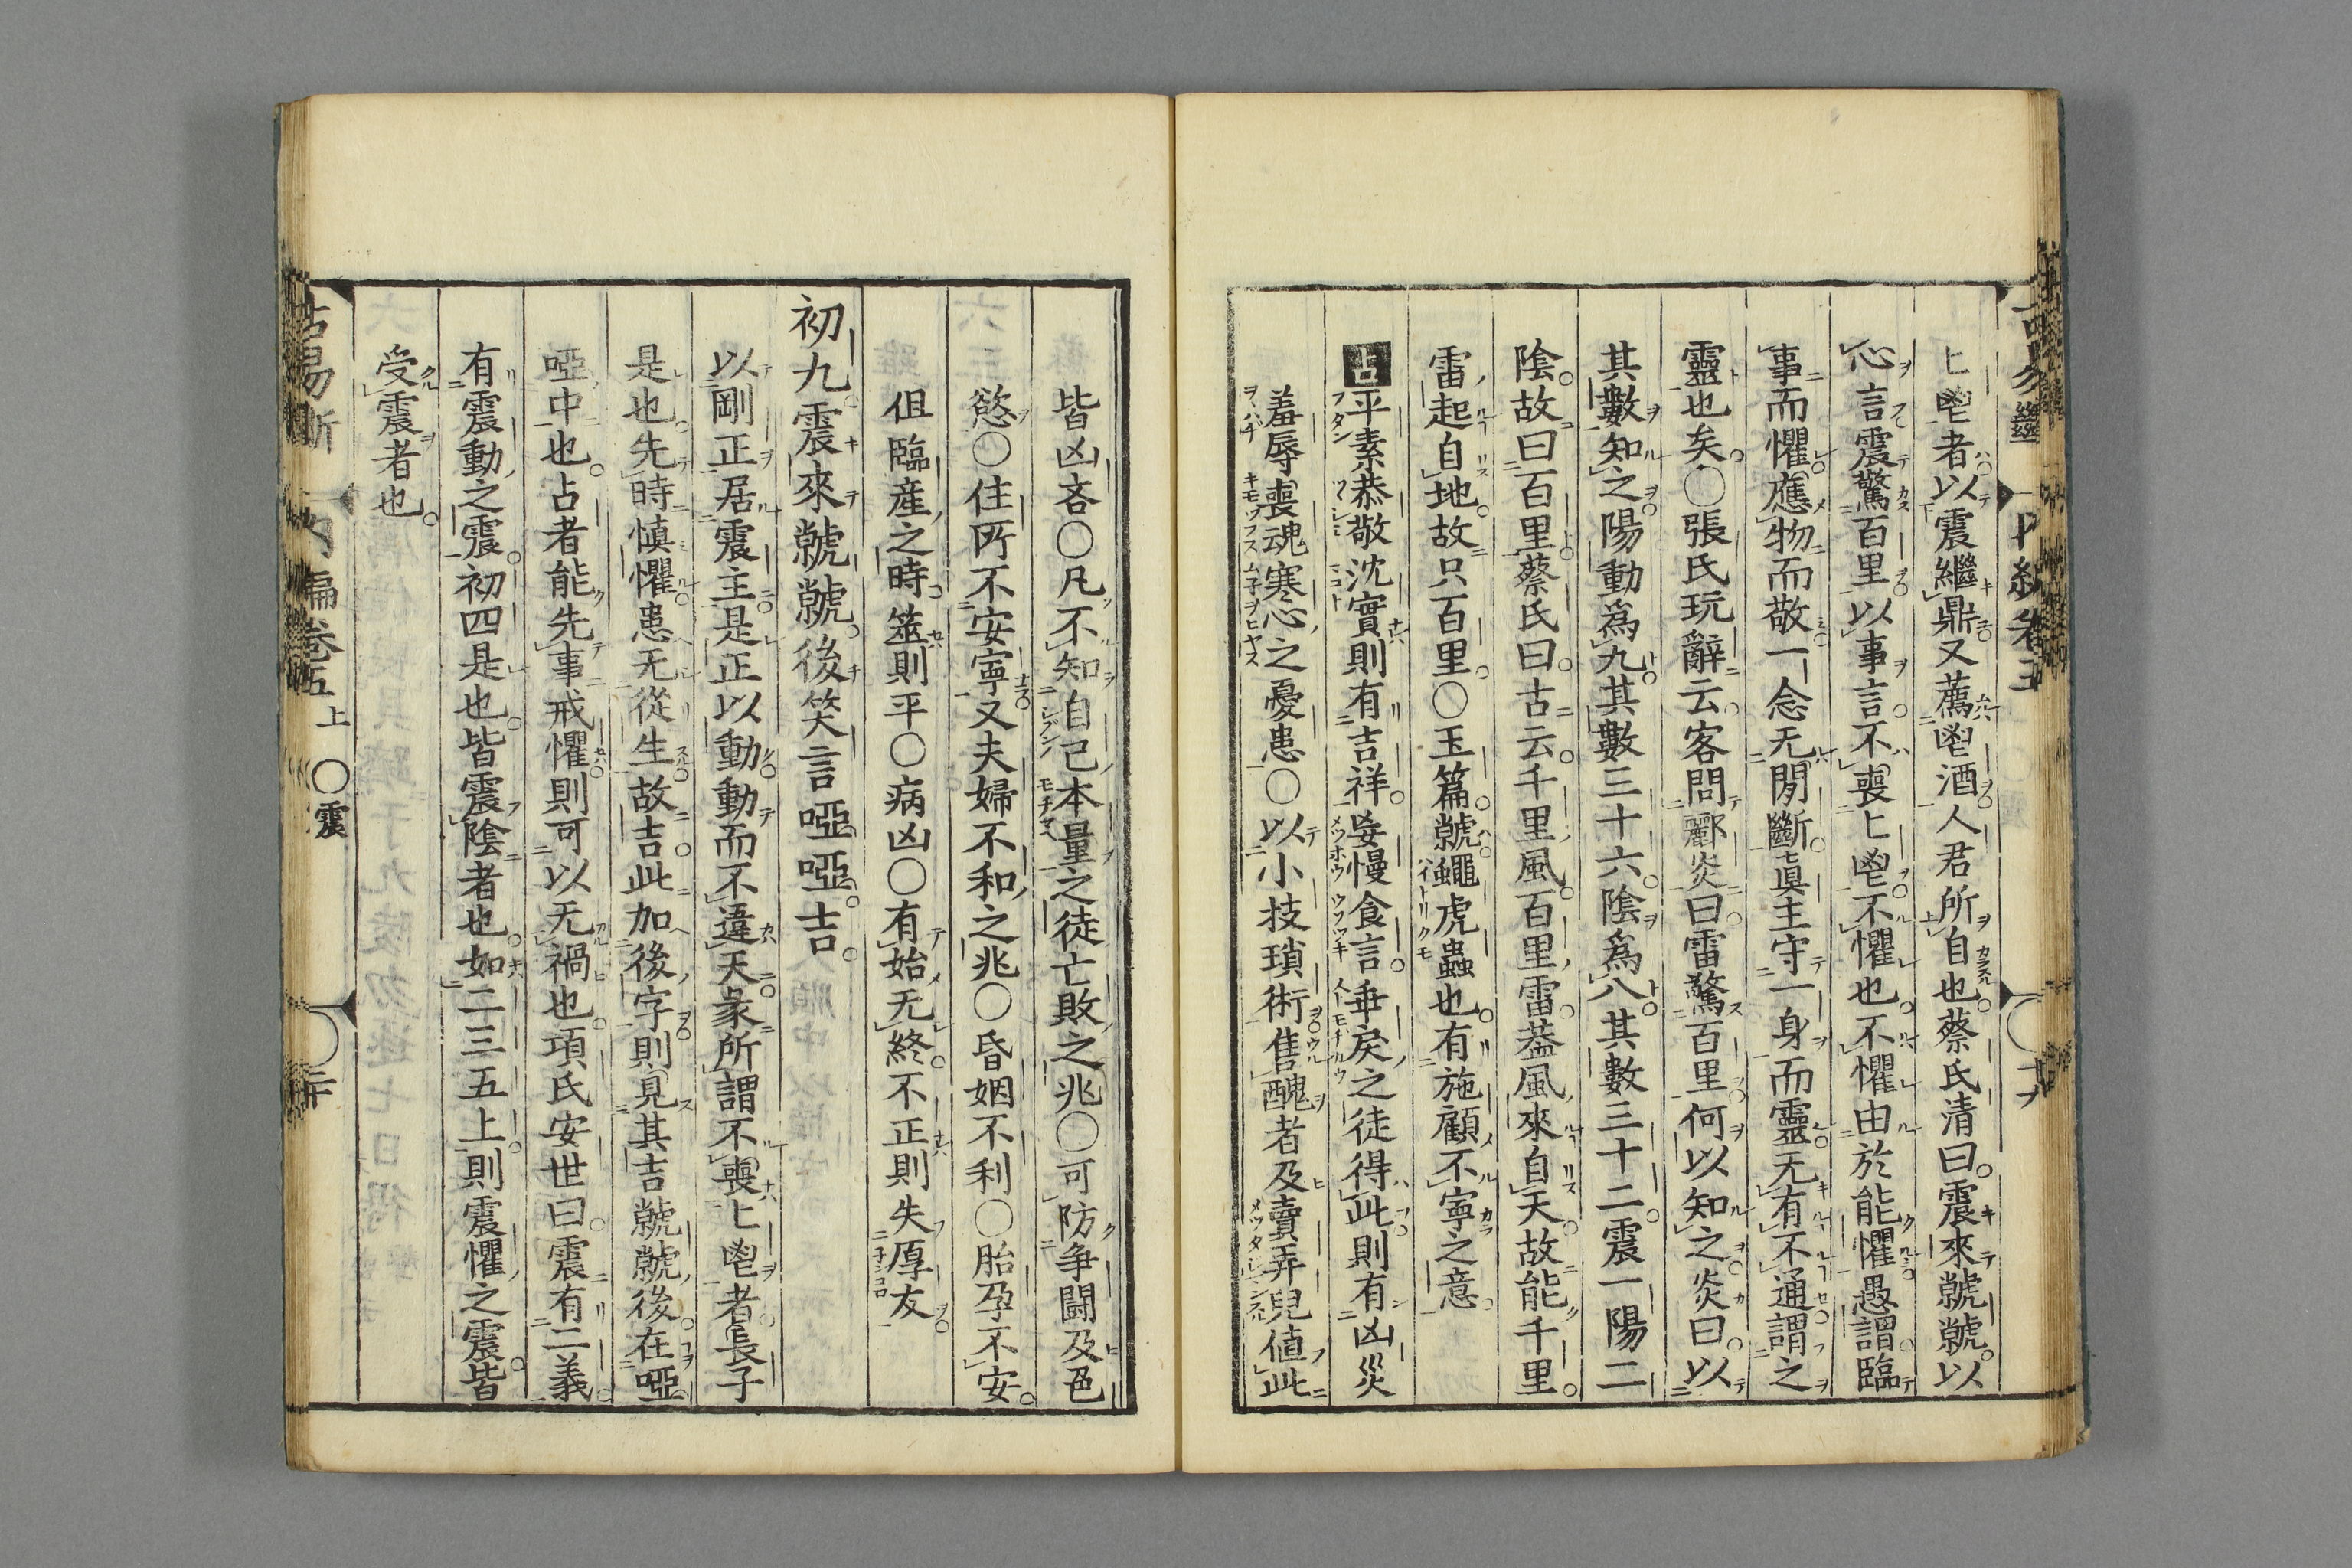 匕鬯者以震繼鼎又薦鬯酒人君所自也蔡氏清曰震來虩虩以
心言震驚百里以事言不喪匕鬯不懼也不懼由於能懼愚謂臨
事而懼應物而敬一念无間斷眞主守一身而靈无有不通謂之
靈也矣○張氏玩辭云客問酈炎曰雷驚百里何以知之炎曰以
其數知之陽動爲九其數三十六陰爲八其數三十二震一陽二
陰故曰百里蔡氏曰古云千里風百里雷葢風來自天故能千里
雷起自地故只百里○玉篇虩蠅虎蟲也有施顧不寧之意
占平素恭敬沈實則有吉祥妄慢食言乖戾之徒得此則有凶災
羞辱喪魂寒心之憂患○以小技瑣術售醜者及賣弄兒値此
皆凶吝○凡不知自己本量之徒亡敗之兆○可防爭鬪及色
慾○住所不安寧又夫婦不和之兆○昏姻不利○胎孕不安
但臨産之時筮則平○病凶○有始无終不正則失厚友
初九震來虩虩後笑言啞啞吉
以剛正居震主是正以動動而不違天彖所謂不喪匕鬯者長子
是也先時愼懼患无從生故吉此加後字則見其吉虩虩後在啞
啞中也占者能先事戒懼則可以无禍也項氏安世曰震有二義
有震動之震初四是也皆震陰者也如二三五上則震懼之震皆
受震者也
古易斷 内編卷五上 ○震 二十